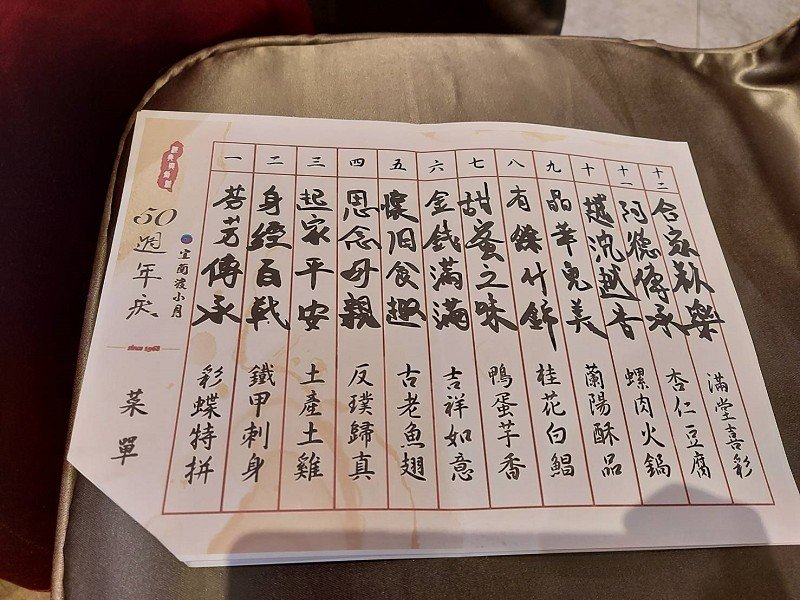 50週年庆
宜蘭渡小月
since 1968
菜單
一
芬芳傳承
彩蝶特拼
二
身經百戰
鐵甲刺身
三
起家平安
土產土雞
四
思念母親
反璞歸真
五
懷旧食趣
古老魚翅
六
金錢滿滿
吉祥如意
七
甜蜜之味
鴨蛋芋香
八
有餘
桂花白鯧
九
晶華兒美
蘭陽酥品
十
越沈越香
螺肉火鍋
十一
阿德傳承
杏仁豆腐
十二
合家歡樂
滿堂喜彩